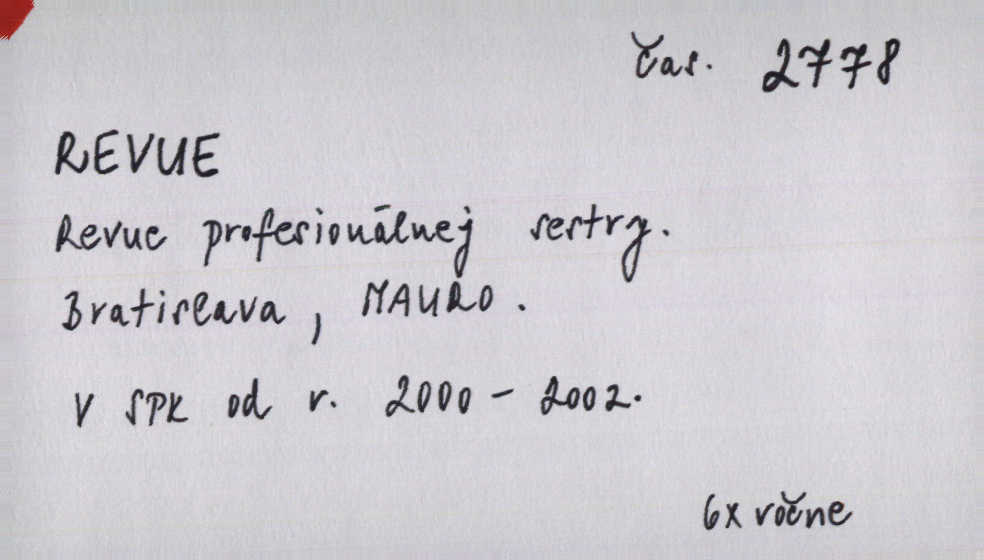 čas. 2778
REVUE
Revue profesionálnej sestry.
Bratislava, MAURO.
V SPK od r. 2000 - 2002.
6x ročne